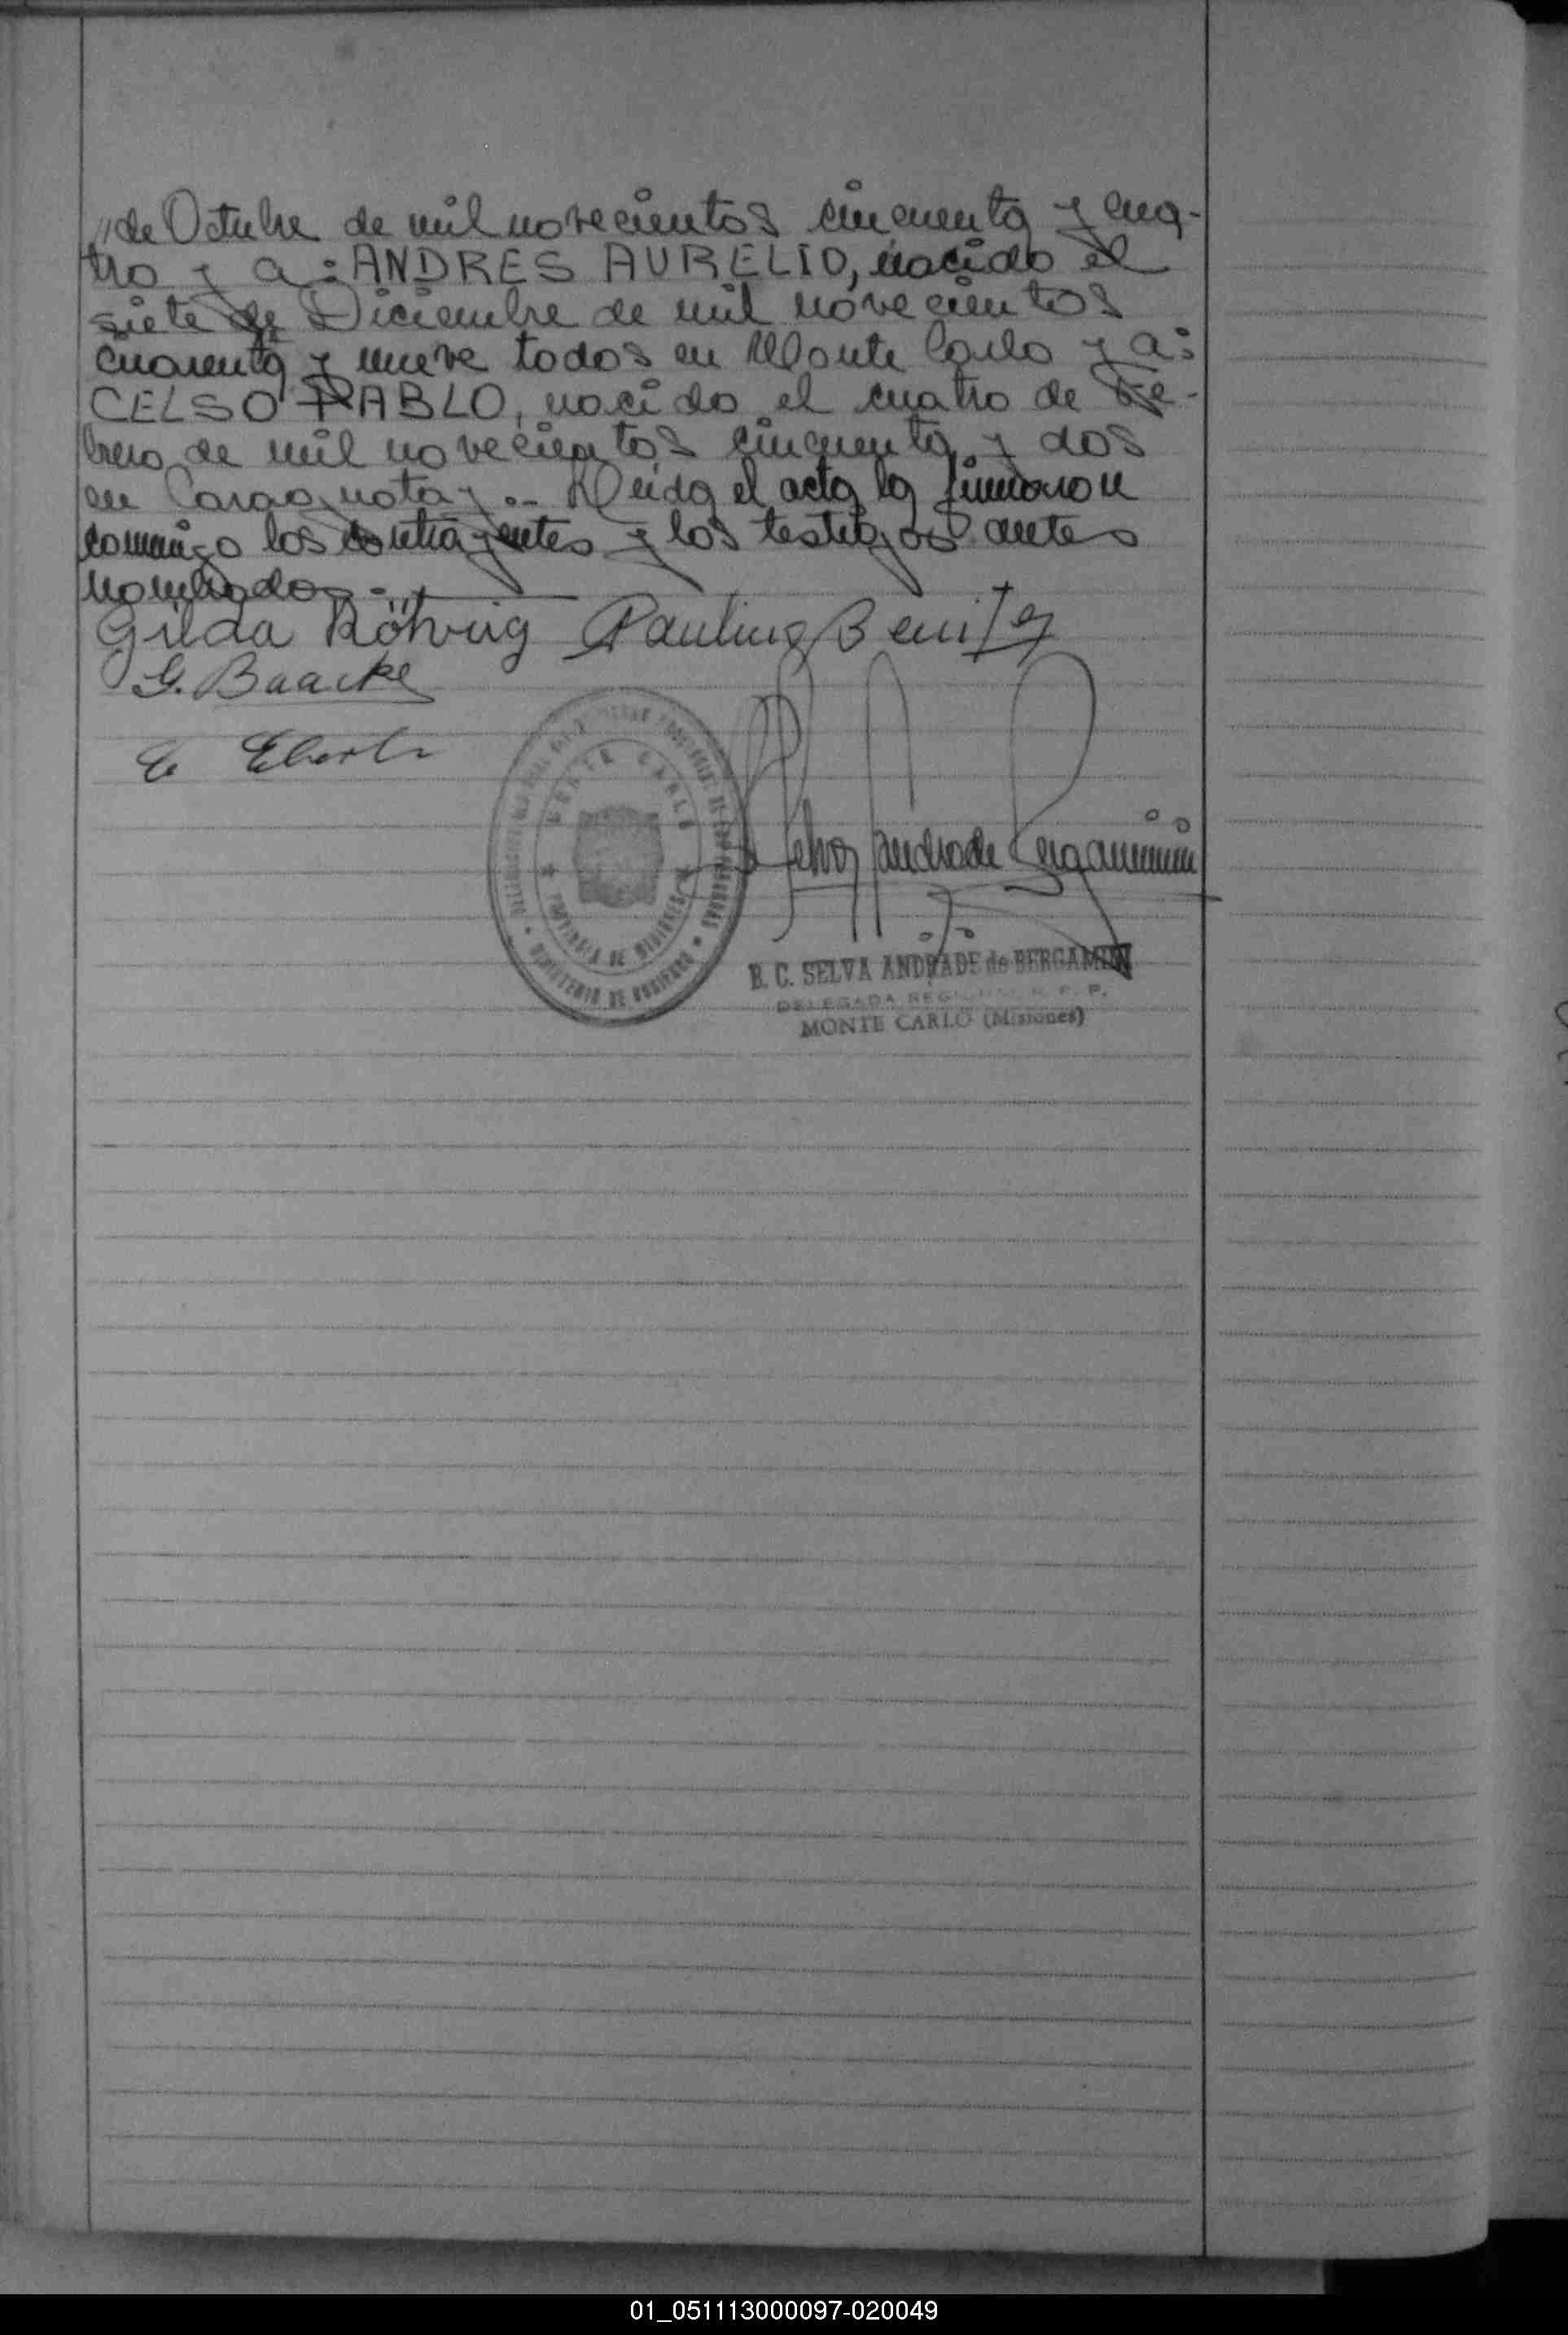 //de Octubre de mil novecientos cincuenta y cua-
tro y a: ANDRES AURELIO, nacido el
siete de Diciembre de mil novecientos
cuarenta y nueve todos en Monte Carlo y a:
CELSO PABLO, nacido el cuatro de Fe-
brero de mil novecientos cincuenta y dos
en Caraguatay.- Leida el acta la firmaron
conmigo los contrayentes y los testigos antes
nombrados.-
Gilda Röhrig Paulino Benitez
G. Baacke
E Ebert
MONTE CARLO
PROVINCIA DE MISIONES
MINISTERIO DE GOBIERNO
Selva Andrade Bergamin
B. C. SELVA ANDRADE de BERGAMIN
DELEGADA REGIONAL R. P. P.
MONTE CARLO (Misiones)
01_051113000097-020049